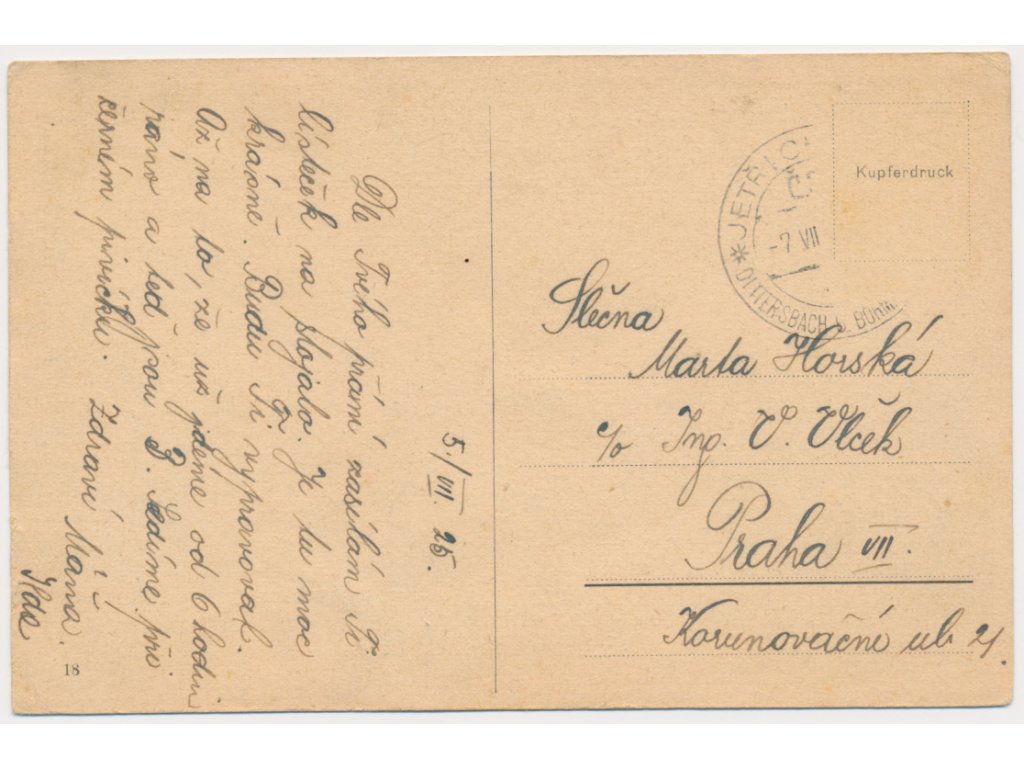 5./VII. 25.
Dle Tvého přání zasílám Ti
lísteček na stojato. Je tu moc
krásně. Budu Ti vypravoval.
Až na to, že už jdeme od 6 hodin
ráno a teď jsou 3. Sedíme při
černém pivíčku. Zdraví Máňa.
18
Kupferdruck
* JETŘIC
-7 VII
DITTERSBACH b. BÖHM
Slečna
Marta Horská
c/o Ing. V. Vlček
Praha VII.
Korunovační ul. 21.